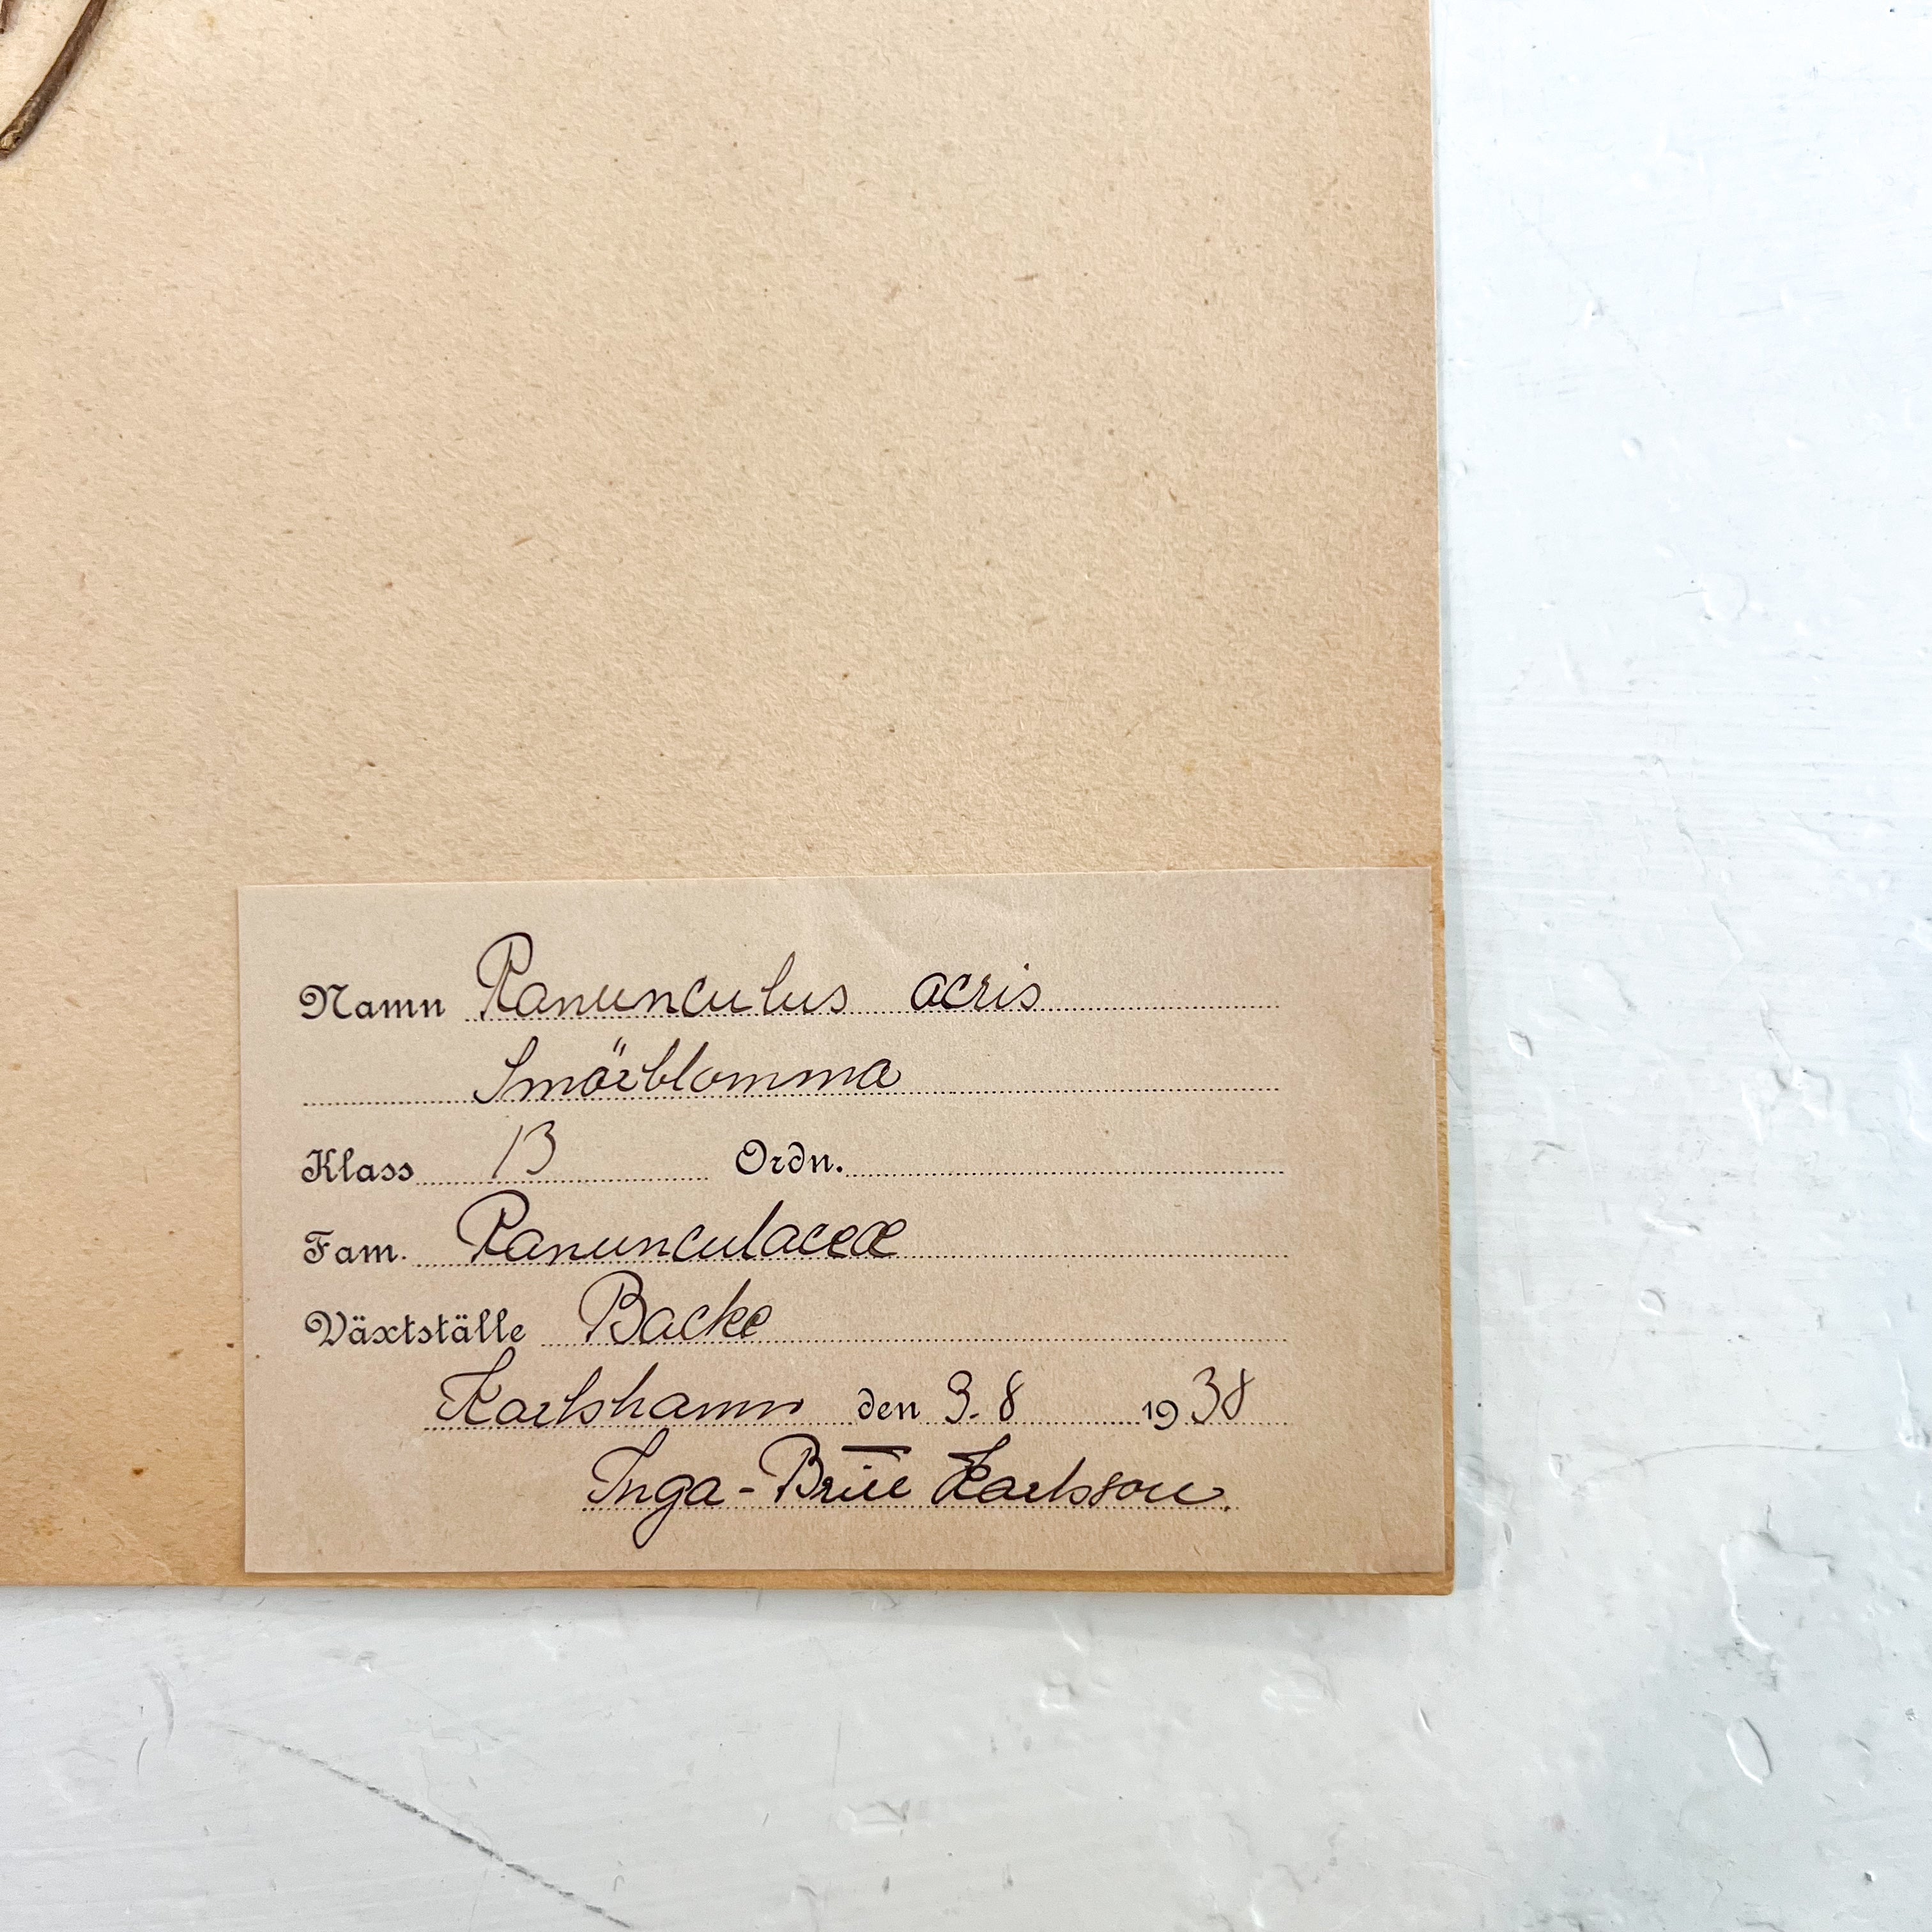 Namn Ranunculus acris
Smörblomma
Klass 13 Ordn.
Fam. Ranunculaceæ
Växtställe Backe
Karlshamn den 3.8 1938
Inga-Britt Karlsson.